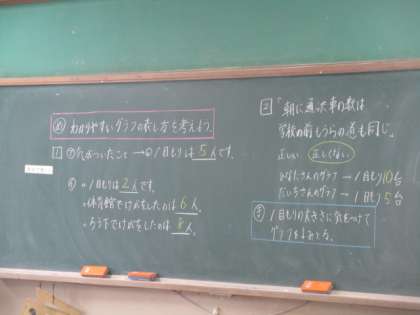 め わかりやすいグラフの表し方を考えよう。
1 ㋐ 気がついたこと → の1目もりは 5人です。
・1目もりは 2人 です。
・体育館でけがをしたのは 6人
・ろう下でけがをしたのは 8人
2 「朝に通った車の数は
学校の前もうらの道も同じ。」
正しい 正しくない
ひなたさんのグラフ → 1目もり10台
だいちさんのグラフ → 1目もり5台
ま 1目もりの大きさに気をつけて
グラフをよみとる。